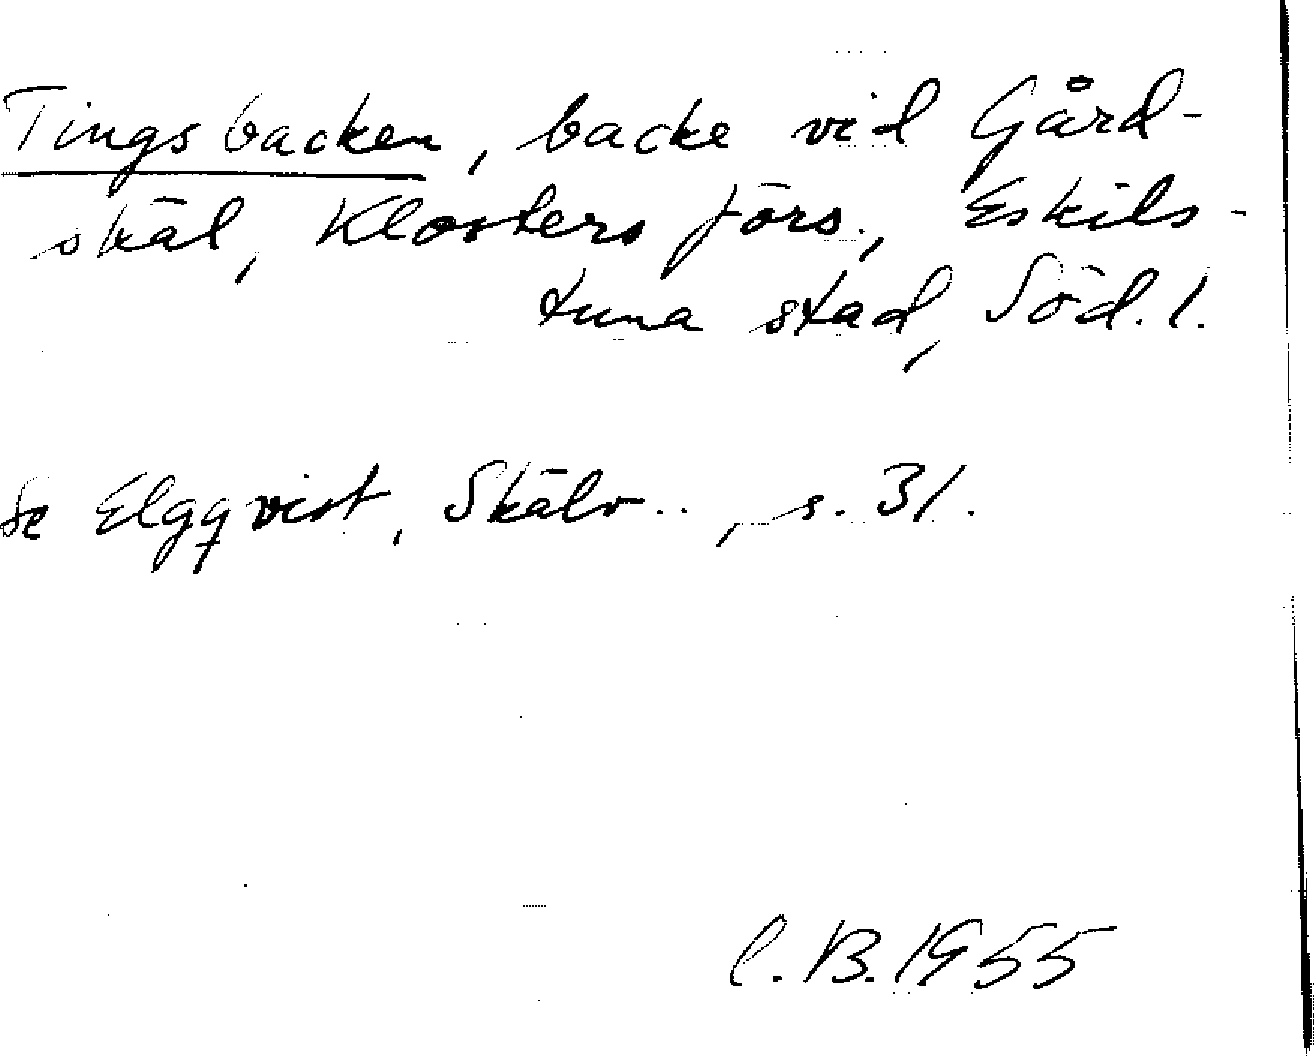 Tingsbacken, backe vid Gård-
skäl, Klosters förs., Eskils-
tuna stad, Söd. l.
Se Elgqvist, Skälv.., s. 31.
C.B. 1955